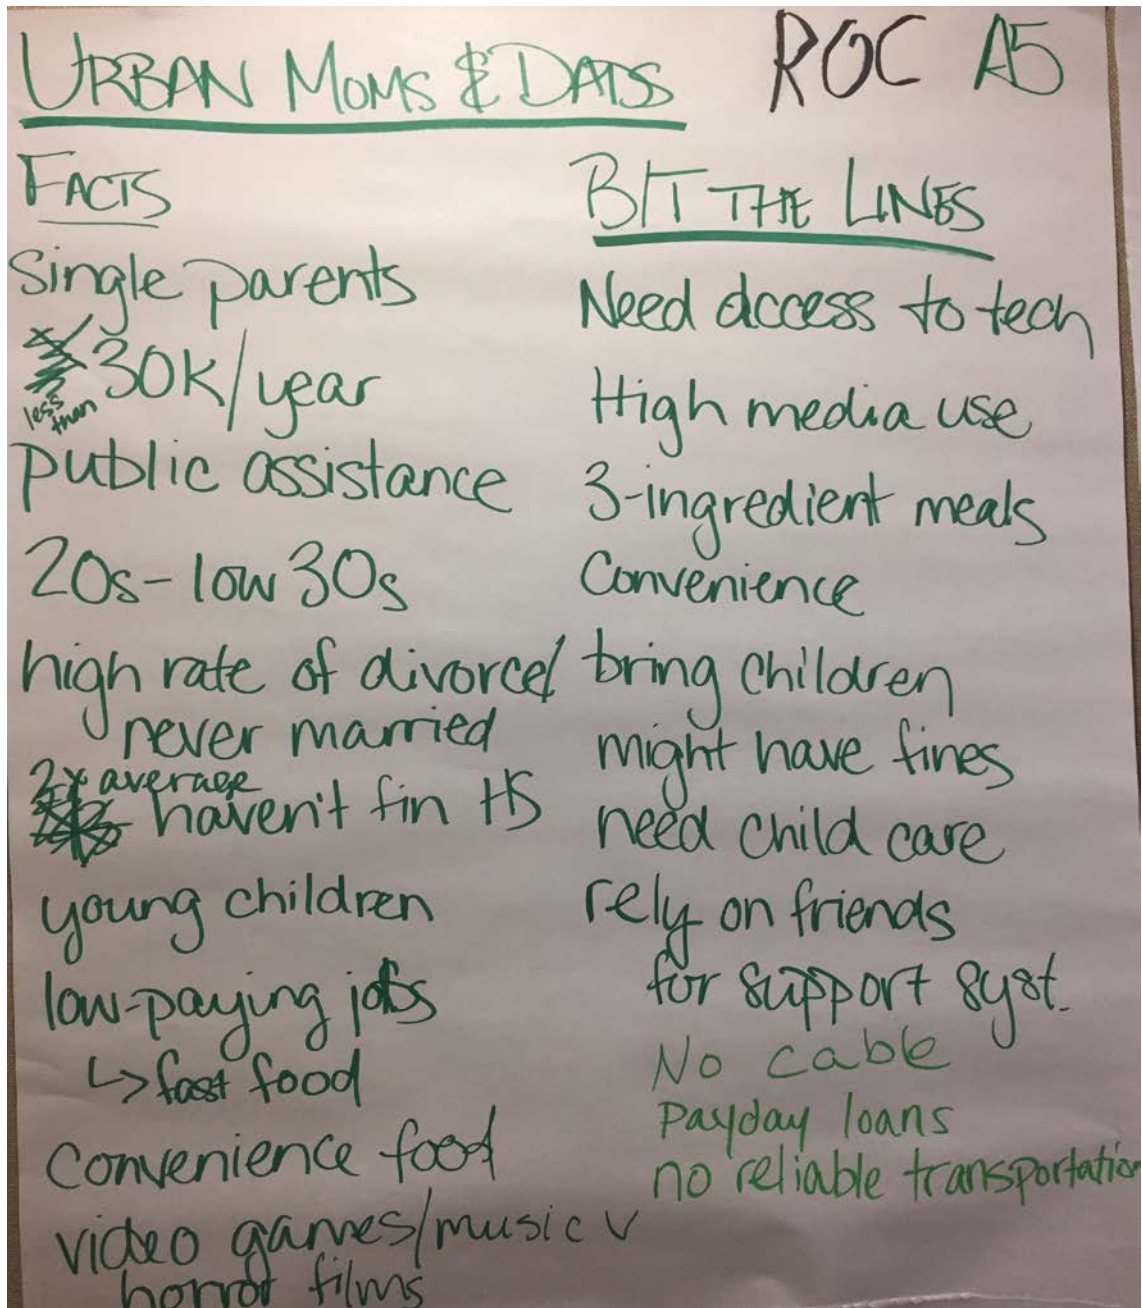 URBAN MOMS & DADS ROC A5
FACTS
Single parents
less than 30K/year
public assistance
20s-low 30s
high rate of divorce/
never married
2x average
haven't fin HS
young children
low-paying jobs
↳ fast food
Convenience food
video games/music v
horror films
B/T THE LINES
Need access to tech
High media use
3-ingredient meals
Convenience
bring children
might have fines
need child care
rely on friends
for support syst.
No cable
Payday loans
no reliable transportation